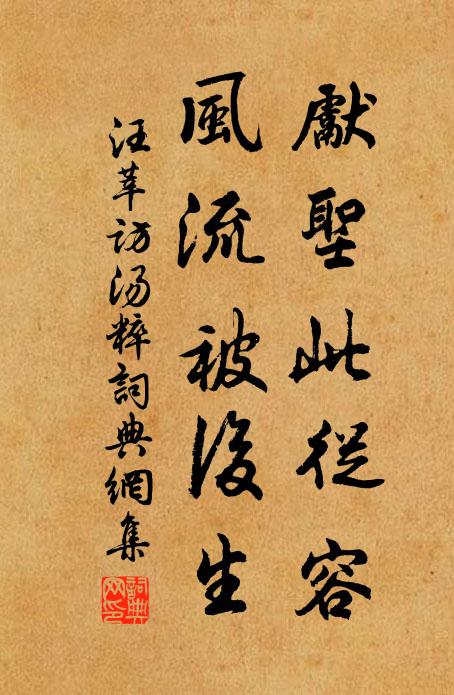 獻聖此從容
風流被後生
汪莘訪湯粹詞典網集
詞典网印